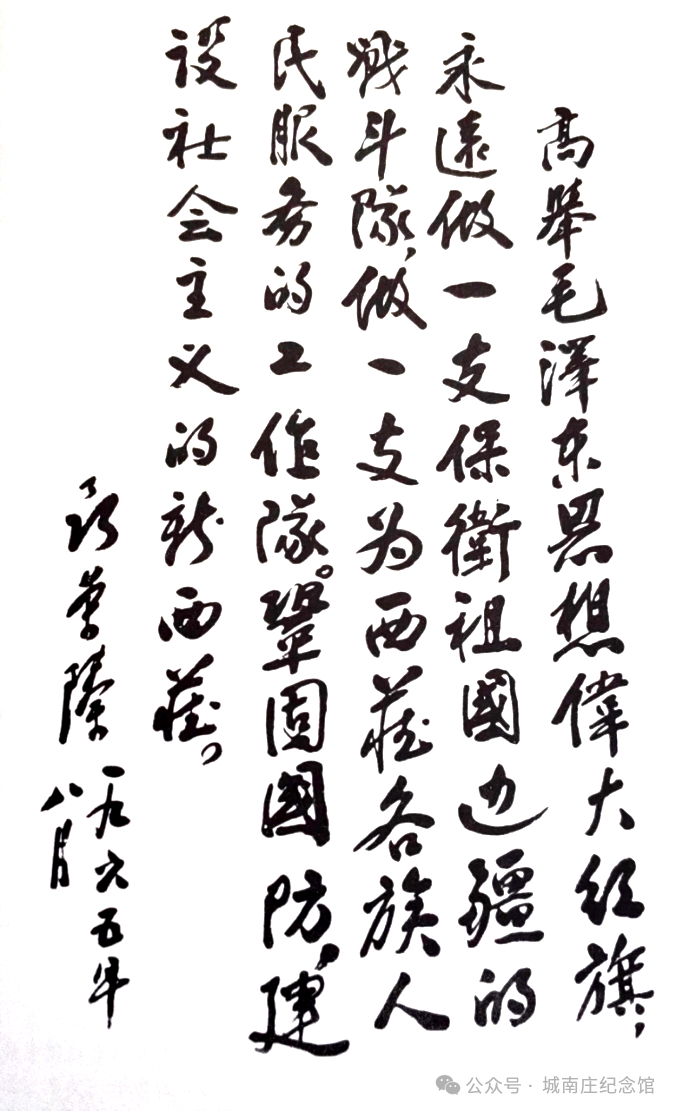 高舉毛澤东思想偉大红旗，
永遠做一支保衛祖國边疆的
战斗隊，做一支为西藏各族人
民服务的工作隊。鞏固國防，建
设社会主义的新西藏。
聂荣臻
一九六五年
八月
公众号·城南庄纪念馆